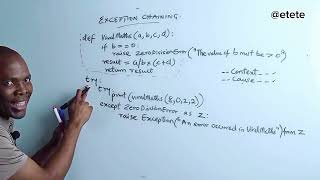 @etete
EXCEPTION CHAINING.
def ViralMaths(a,b,c,d):
if b==0:
raise ZeroDivisionError("The value of b must be >0")
result = a/b*(c+d)
return result
-- Context --
-- Cause --
try:
try
print(ViralMaths(8,0,2,2))
except ZeroDivisionError as Z:
raise Exception("An error occurred in ViralMaths") from Z